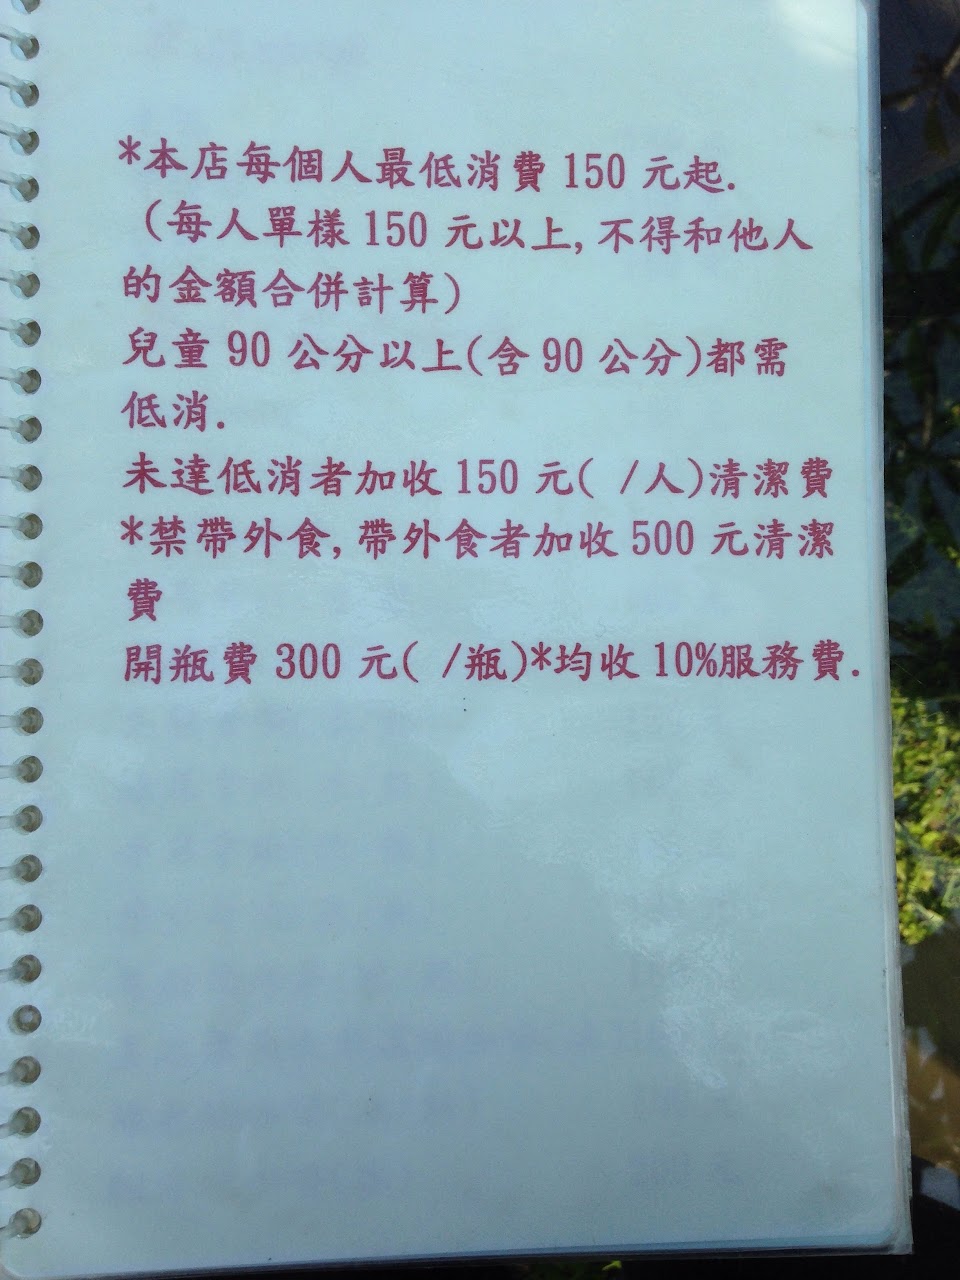 *本店每個人最低消費 150 元起.
（每人單樣 150 元以上, 不得和他人
的金額合併計算)
兒童 90 公分以上(含 90 公分)都需
低消.
未達低消者加收 150 元( /人)清潔費
*禁帶外食, 帶外食者加收 500 元清潔
費
開瓶費 300 元( /瓶)*均收 10%服務費.